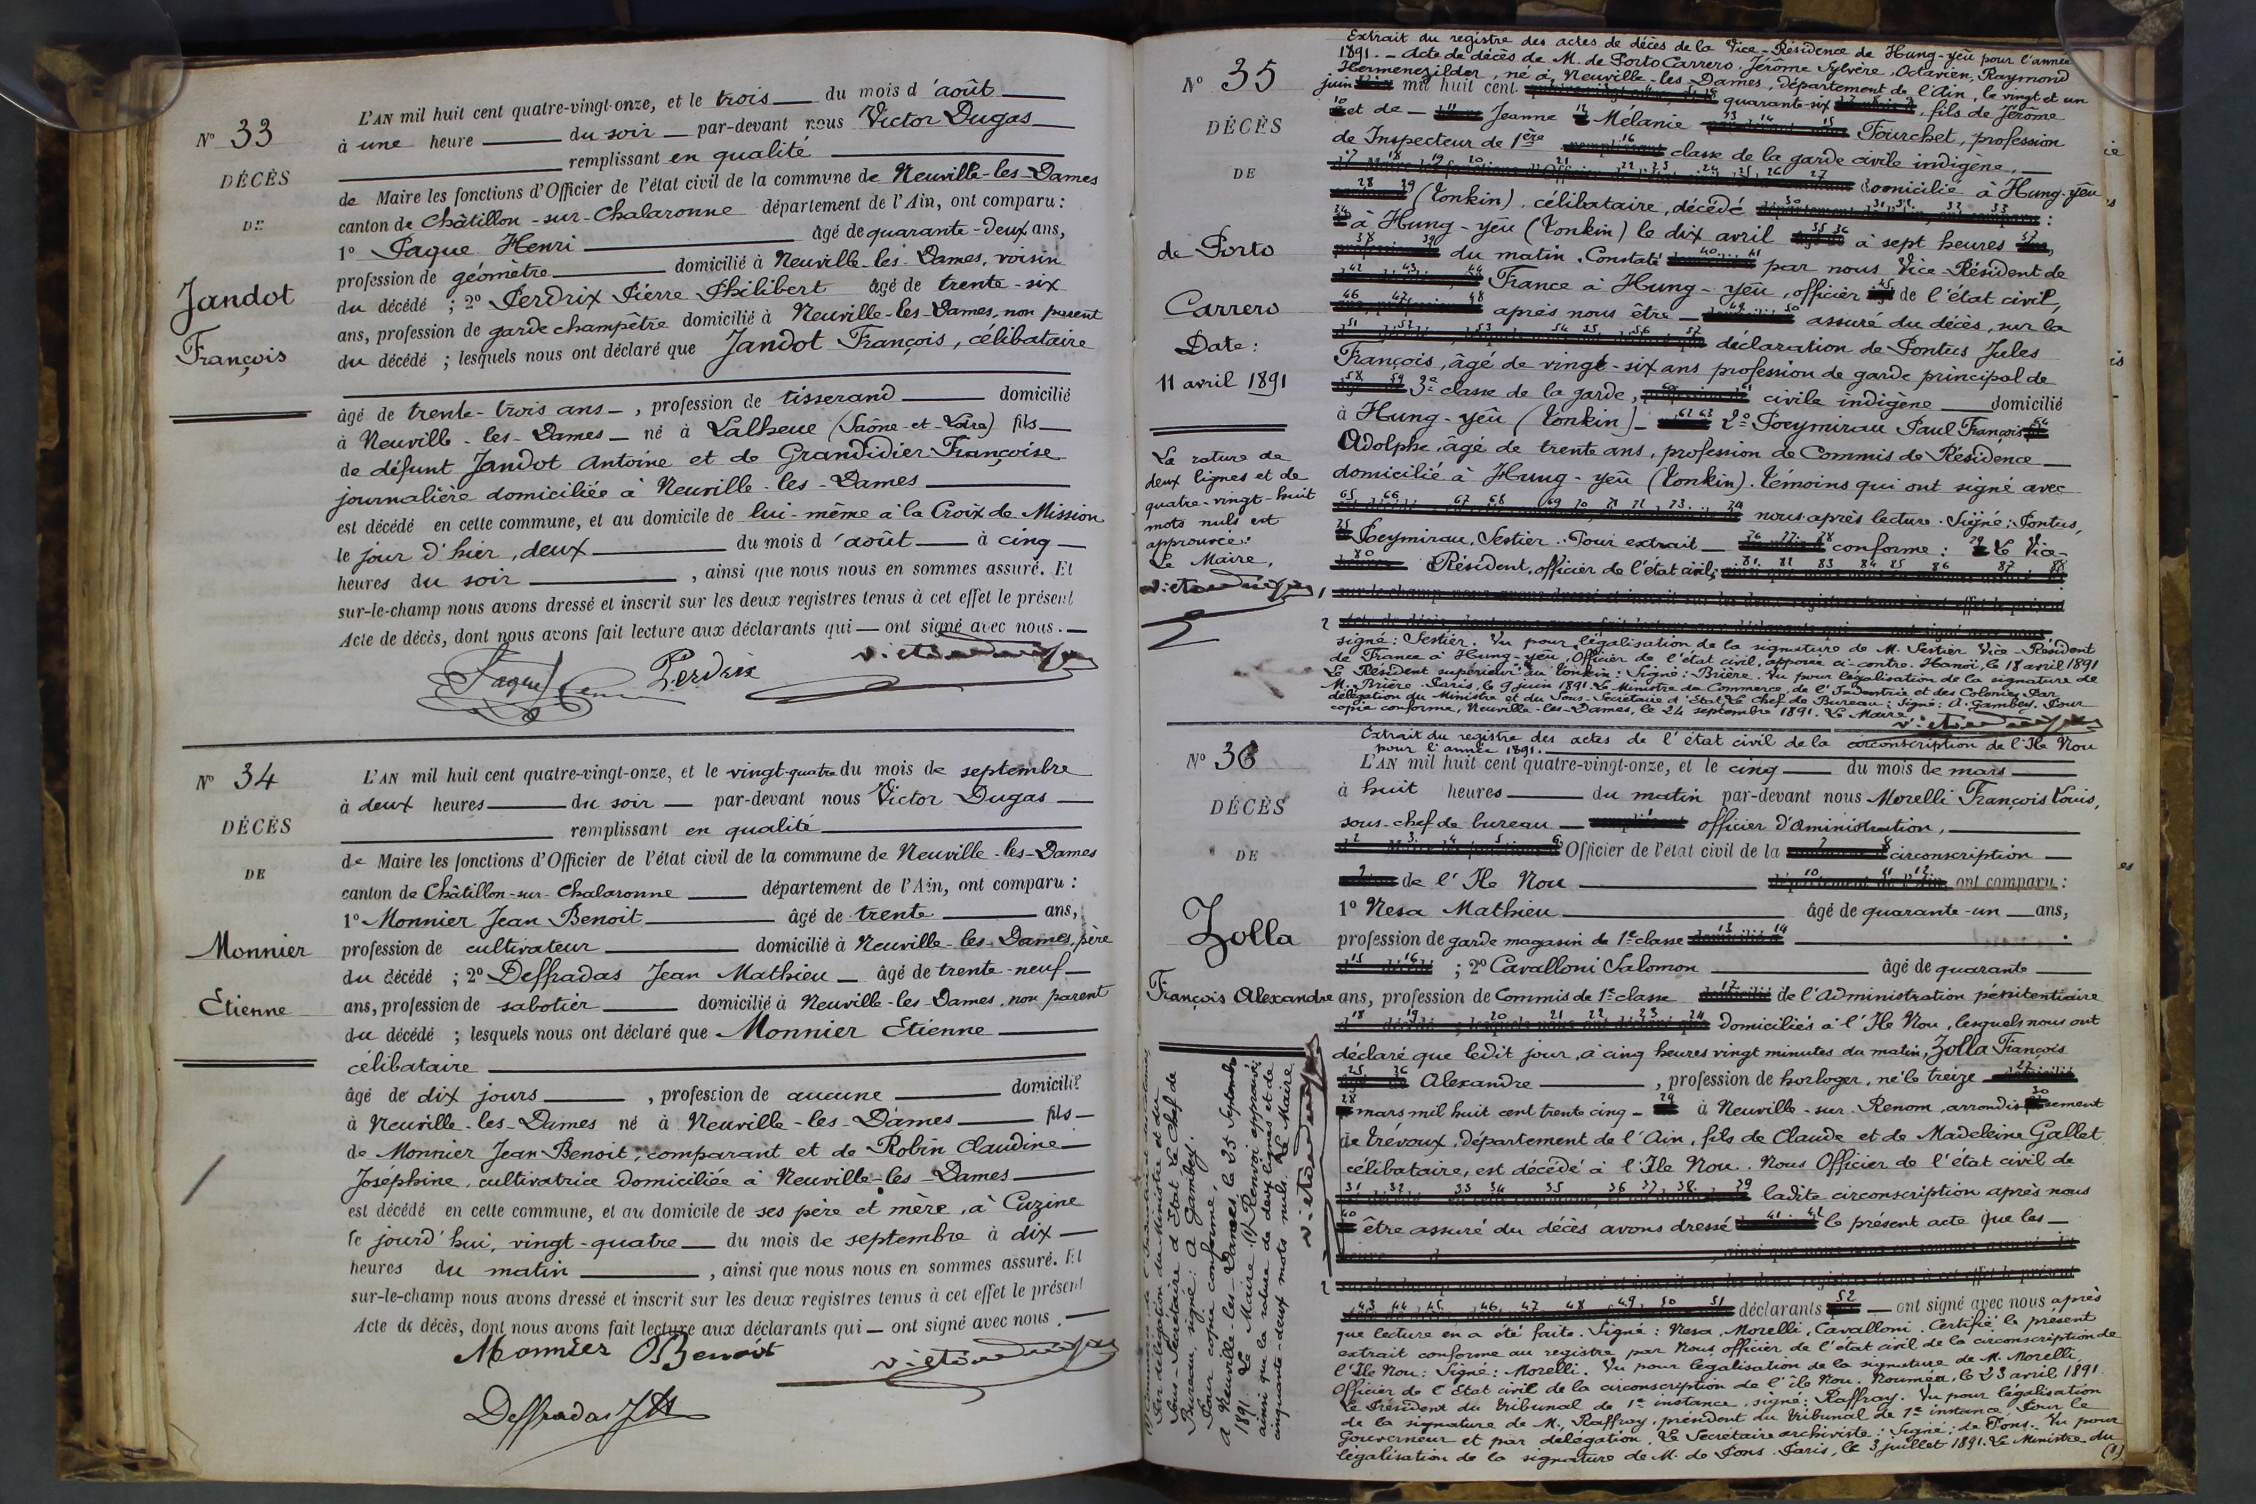 N° 33
DÉCÈS
DE
Jandot
François
L'AN mil huit cent quatre-vingt-onze, et le trois du mois d'août
à une heure du soir par-devant nous Victor Dugas
remplissant en qualité
de Maire les fonctions d'Officier de l'état civil de la commune de Neuville-les-Dames
canton de Châtillon-sur-Chalaronne département de l'Ain, ont comparu :
1° Paque Henri âgé de quarante-deux ans,
profession de géomètre domicilié à Neuville-les-Dames, voisin
du décédé ; 2° Perdrix Pierre Philibert âgé de trente-six
ans, profession de garde champêtre domicilié à Neuville-les-Dames, non parent
du décédé ; lesquels nous ont déclaré que Jandot François, célibataire
âgé de trente-trois ans, profession de tisserand domicilié
à Neuville-les-Dames né à Lalheue (Saône-et-Loire) fils
de défunt Jandot Antoine et de Grandidier Françoise
journalière domiciliée à Neuville-les-Dames
est décédé en cette commune, et au domicile de lui-même à la Croix de Mission
le jour d'hier, deux du mois d'août à cinq
heures du soir, ainsi que nous nous en sommes assuré. Et
sur-le-champ nous avons dressé et inscrit sur les deux registres tenus à cet effet le présent
Acte de décès, dont nous avons fait lecture aux déclarants qui ont signé avec nous.
Paque Perdrix Victor Dugas
N° 34
DÉCÈS
DE
Monnier
Etienne
L'AN mil huit cent quatre-vingt-onze, et le vingt-quatre du mois de septembre
à deux heures du soir par-devant nous Victor Dugas
remplissant en qualité
de Maire les fonctions d'Officier de l'état civil de la commune de Neuville-les-Dames
canton de Châtillon-sur-Chalaronne département de l'Ain, ont comparu :
1° Monnier Jean Benoit âgé de trente ans,
profession de cultivateur domicilié à Neuville-les-Dames, père
du décédé ; 2° Deffradas Jean Mathieu âgé de trente-neuf
ans, profession de sabotier domicilié à Neuville-les-Dames, non parent
du décédé ; lesquels nous ont déclaré que Monnier Etienne
célibataire
âgé de dix jours, profession de aucune domicilié
à Neuville-les-Dames né à Neuville-les-Dames fils
de Monnier Jean Benoit, comparant et de Robin Claudine
Joséphine, cultivatrice domiciliée à Neuville-les-Dames
est décédé en cette commune, et au domicile de ses père et mère, à Cuzine
le jourd'hui, vingt-quatre du mois de septembre à dix
heures du matin, ainsi que nous nous en sommes assuré. Et
sur-le-champ nous avons dressé et inscrit sur les deux registres tenus à cet effet le présent
Acte de décès, dont nous avons fait lecture aux déclarants qui ont signé avec nous.
Monnier Benoit Victor Dugas
Deffradas J M
N° 35
DÉCÈS
DE
de Porto
Carrero
Date :
11 avril 1891
La rature de
deux lignes et de
quatre-vingt-huit
mots nuls est
approuvée.
Le Maire,
Victor Dugas
Extrait du registre des actes de décès de la Vice-Résidence de Hung-yên pour l'année
1891. — Acte de décès de M. de Porto Carrero, Jérôme Sylvère, Octavien, Raymond
Hermenegilder, né à Neuville-les-Dames, département de l'Ain, le vingt et un
juin mil huit cent quarante-six, fils de Jérôme
et de Jeanne Mélanie Fourchet, profession
de Inspecteur de 1ère classe de la garde civile indigène,
domicilié à Hung-yên
(Tonkin), célibataire, décédé :
à Hung-yên (Tonkin) le dix avril à sept heures
du matin. Constaté par nous Vice-Résident de
France à Hung-yên, officier de l'état civil,
après nous être assuré du décès, sur la
déclaration de Pontus Jules
François, âgé de vingt-six ans profession de garde principal de
3e classe de la garde, civile indigène domicilié
à Hung-yên (Tonkin) 2° Poeymirau Paul François
Adolphe, âgé de trente ans, profession de Commis de Résidence
domicilié à Hung-yên (Tonkin). Témoins qui ont signé avec
nous après lecture. Signé : Pontus,
Poeymirau, Sestier. Pour extrait conforme : Le Vice-
Résident, officier de l'état civil,
signé : Sestier. Vu pour légalisation de la signature de M. Sestier Vice-Résident
de France à Hung-yên, Officier de l'état civil, apposée ci-contre. Hanoï, le 18 avril 1891
Le Résident supérieur au Tonkin : Signé : Brière. Vu pour légalisation de la signature de
M. Brière. Paris, le 9 juin 1891. Le Ministre du Commerce, de l'Industrie et des Colonies, Par
délégation du Ministre et du Sous-Secrétaire d'Etat, Le Chef de Bureau : Signé : A. Gambey. Pour
copie conforme, Neuville-les-Dames, le 24 septembre 1891. Le Maire
Victor Dugas
N° 36
DÉCÈS
DE
Zolla
François Alexandre
Extrait du registre des actes de l'état civil de la circonscription de l'Ile Nou
pour l'année 1891.
L'AN mil huit cent quatre-vingt-onze, et le cinq du mois de mars
à huit heures du matin par-devant nous Morelli François Louis,
sous-chef de bureau officier d'aministration,
Officier de l'état civil de la circonscription
de l'Ile Nou ont comparu :
1° Nesa Mathieu âgé de quarante-un ans,
profession de garde magasin de 1e classe
; 2° Cavalloni Salomon âgé de quarante
ans, profession de Commis de 1e classe de l'Administration pénitentiaire
domiciliés à l'Ile Nou, lesquels nous ont
déclaré que ledit jour, à cinq heures vingt minutes du matin, Zolla François
Alexandre, profession de horloger, né le treize
mars mil huit cent trente cinq à Neuville-sur-Renom, arrondissement
de Trévoux, département de l'Ain, fils de Claude et de Madeleine Gallet
célibataire, est décédé à l'Ile Nou. Nous Officier de l'état civil de
ladite circonscription après nous
être assuré du décès avons dressé le présent acte que les
déclarants ont signé avec nous après
que lecture en a été faite. Signé : Nesa, Morelli, Cavalloni. Certifié le présent
extrait conforme au registre par Nous officier de l'état civil de la circonscription de
l'Ile Nou : Signé : Morelli. Vu pour légalisation de la signature de M. Morelli
Officier de l'Etat civil de la circonscription de l'île Nou. Nouméa, le 23 avril 1891
Le Président du Tribunal de 1e instance, signé : Raffray. Vu pour légalisation
de la signature de M. Raffray, président du Tribunal de 1e instance, Pour le
Gouverneur et par délégation, Le Secrétaire archiviste : Signé : de Pons. Vu pour
légalisation de la signature de M. de Pons. Paris, le 3 juillet 1891. Le Ministre du
(1)
(1) Commerce, de l'Industrie et des Colonies
Par délégation du Ministre et du
Sous-Secrétaire d'Etat Le Chef de
Bureau, signé : A. Gambey.
Pour copie conforme,
à Neuville-les-Dames, le 25 Septembre
1891. Le Maire. (1) Renvoi approuvé
ainsi que la rature de deux lignes et de
cinquante-deux mots nuls. Le Maire,
Victor Dugas